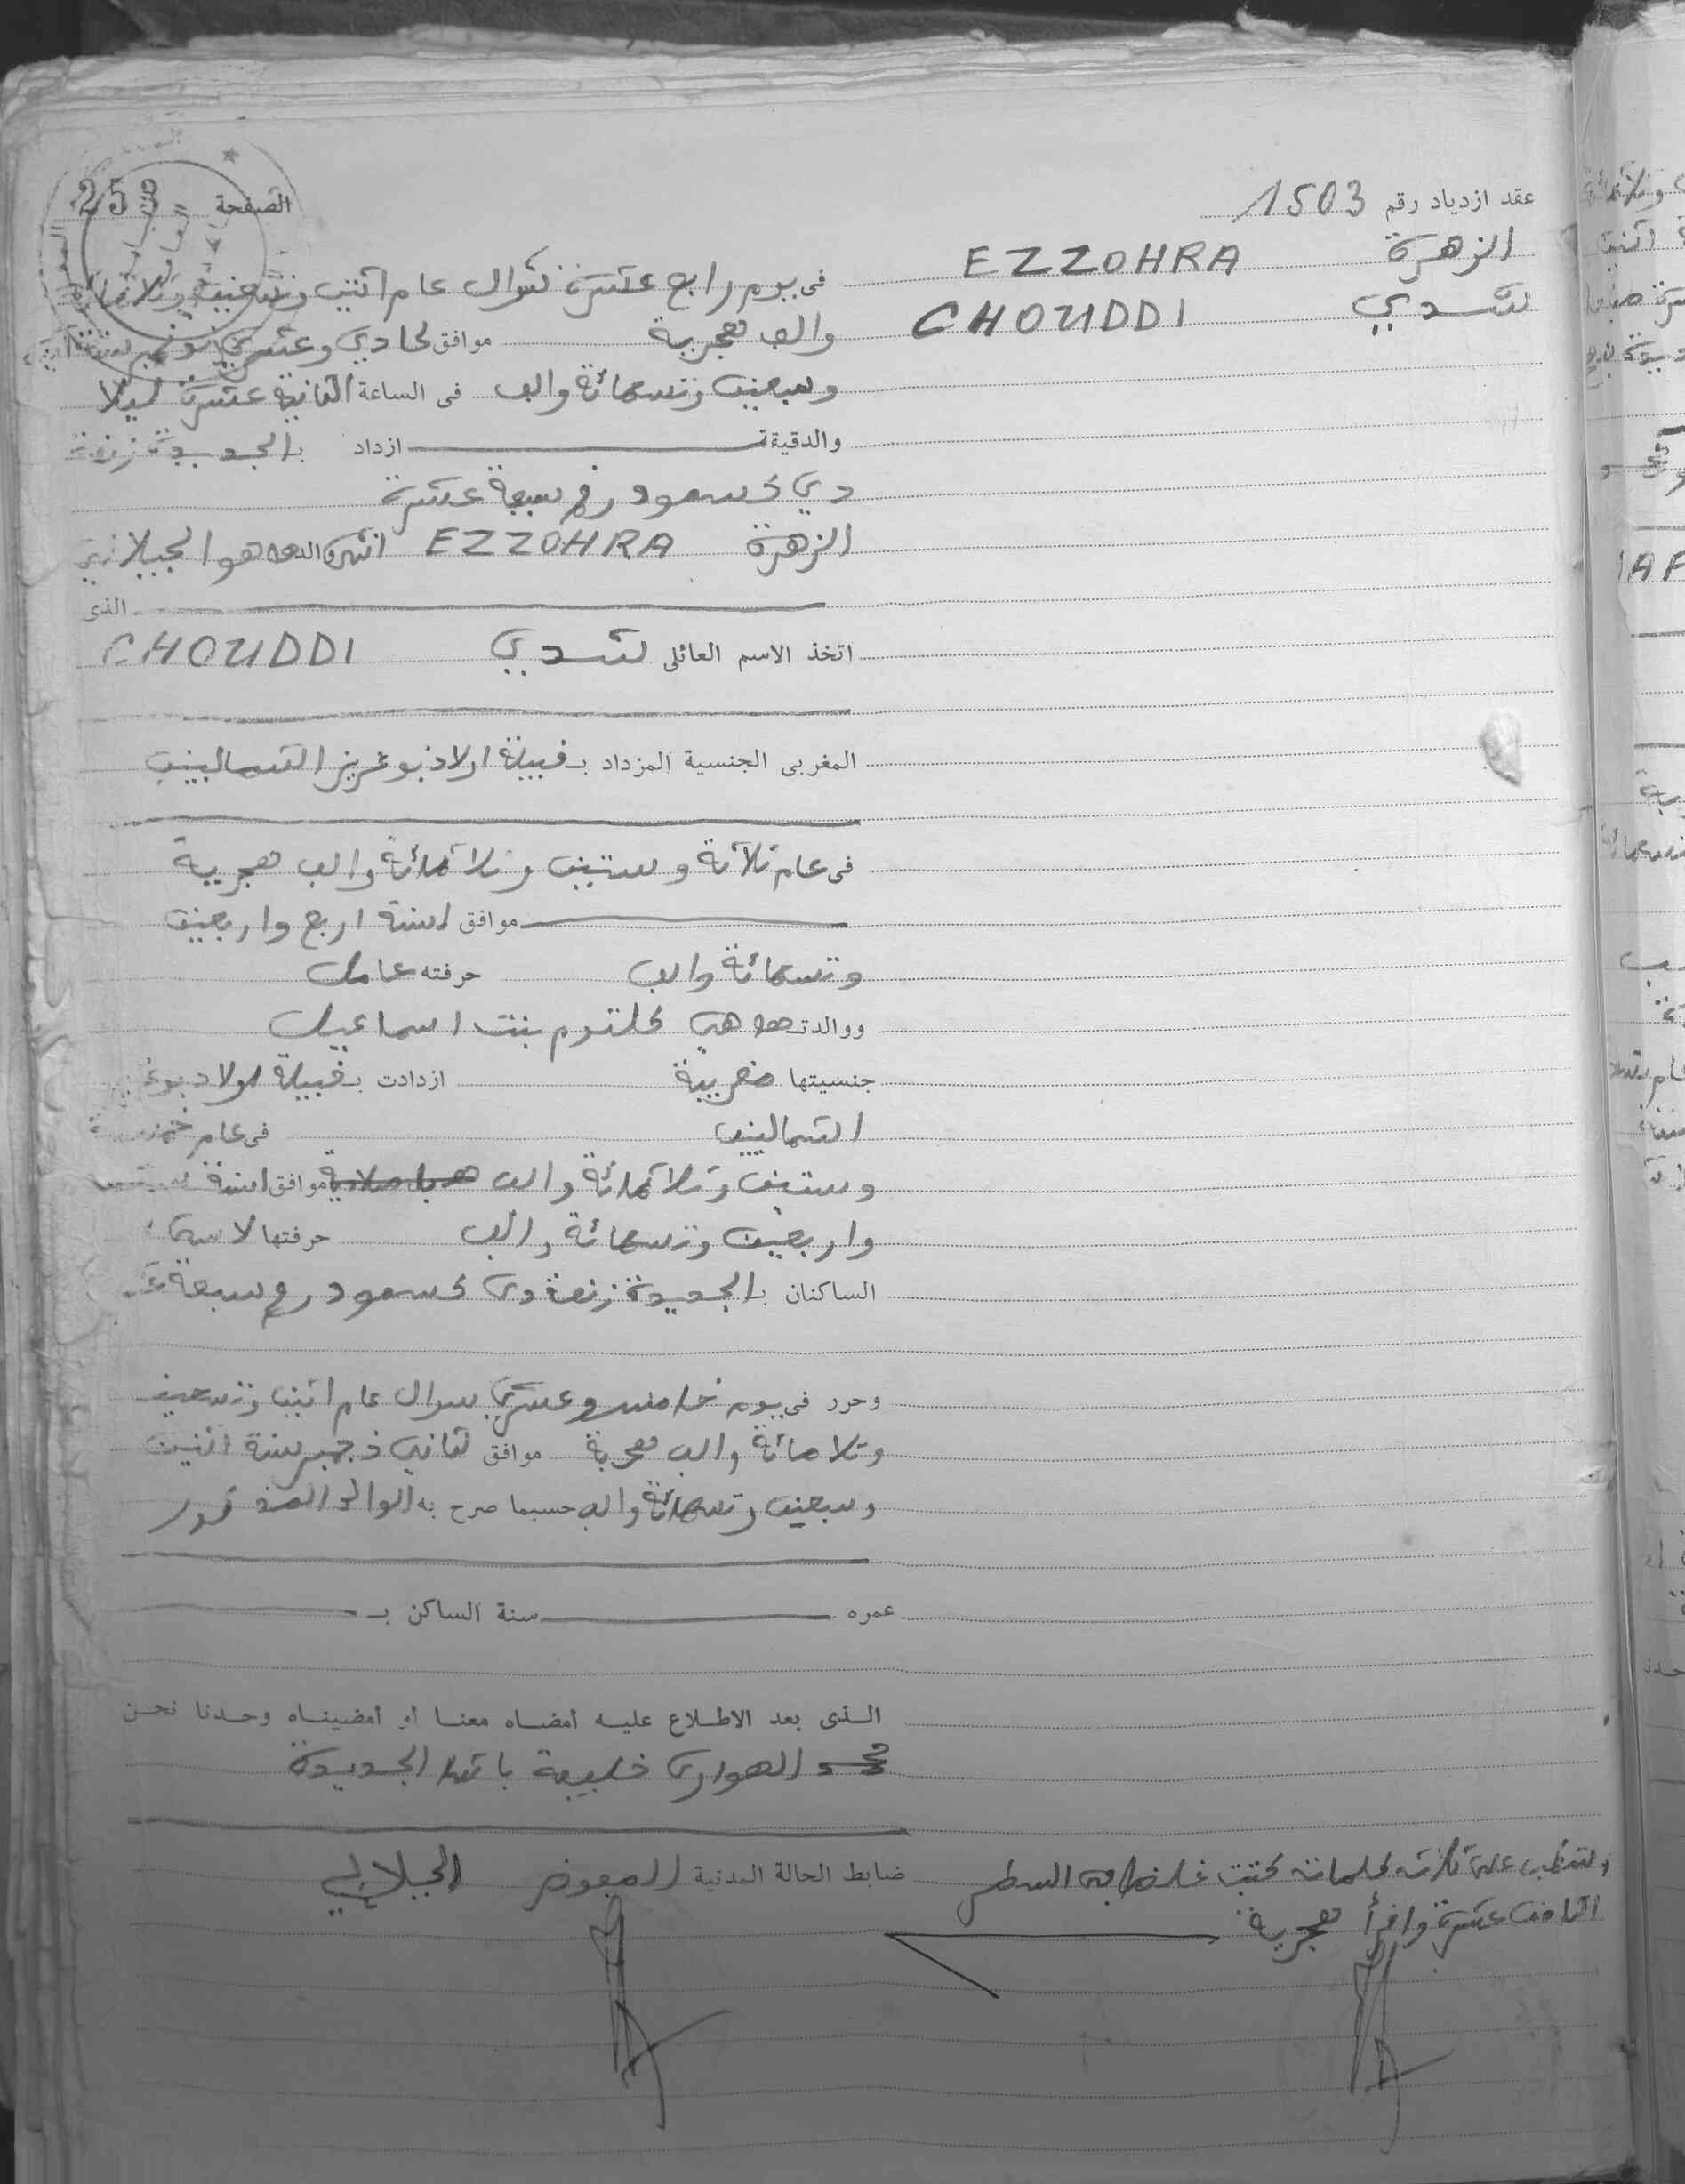 عقد ازدياد رقم 1503
الزهرة EZZOHRA
شدي CHOUDDI
الصفحة 253
فى يوم رابع عشرة شوال عام اثنين وتسعين وثلاثمائة
والف هجرية موافق لحادي وعشرين نونبر سنة اثنين
وسبعين وتسعمائة والف فى الساعة الثانية عشرة ليلا
والدقيقة ازداد بالجديدة زنقة
دي كسعود رقم سبعة عشرة
الزهرة EZZOHRA انثى والدها هو الجيلالي
الذى
اتخذ الاسم العائلى شدي CHOUDDI
المغربى الجنسية المزداد بـ قبيلة اولاد بوعزيز الشماليين
فى عام ثلاثة وستين وثلاثمائة والف هجرية
موافق لسنة اربع واربعين
وتسعمائة والف حرفته عامل
ووالدتها هي كلتوم بنت اسماعيل
جنسيتها مغربية ازدادت بـ قبيلة اولاد
الشماليين فى عام
وستين وثلاثمائة والف موافق لسنة
واربعين وتسعمائة والف حرفتها لا
الساكنان بالجديدة زنقة دي كسعود رقم سبعة
وحرر فى يوم خامس وعشري شوال عام اثنين وتسعين
وثلاثمائة والف هجرية موافق ثاني دجنبر سنة اثنين
وسبعين وتسعمائة والف حسبما صرح به الوالد المذكور
عمره سنة الساكن بـ
الذى بعد الاطلاع عليه أمضاه معنا أو أمضيناه وحدنا نحن
محمد الهواري خليفة باشا الجديدة
ضابط الحالة المدنية المفوض الجيلالي
والتشطيب على ثلاث كلمات كتبت غلطا في السطر
الثامن عشرة واقرأ هجرية